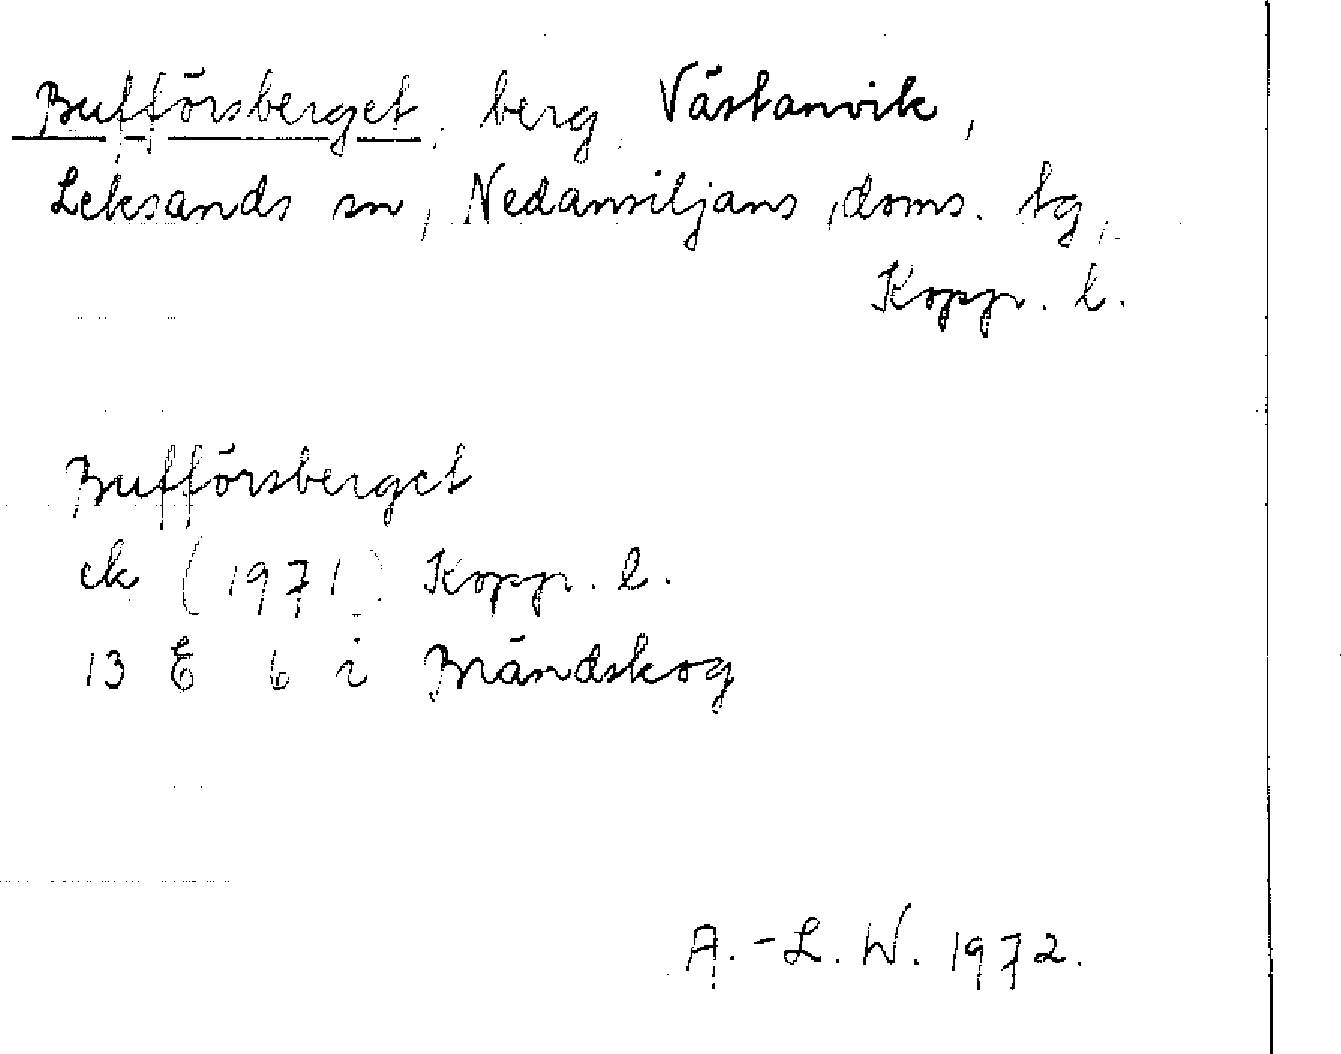 Bufförsberget, berg, Västanvik,
Leksands sn, Nedansiljans doms. tg,
Kopp. l.
Bufförsberget
ek (1971) Kopp. l.
13 E 6 i Brändskog
A.-L. W. 1972.